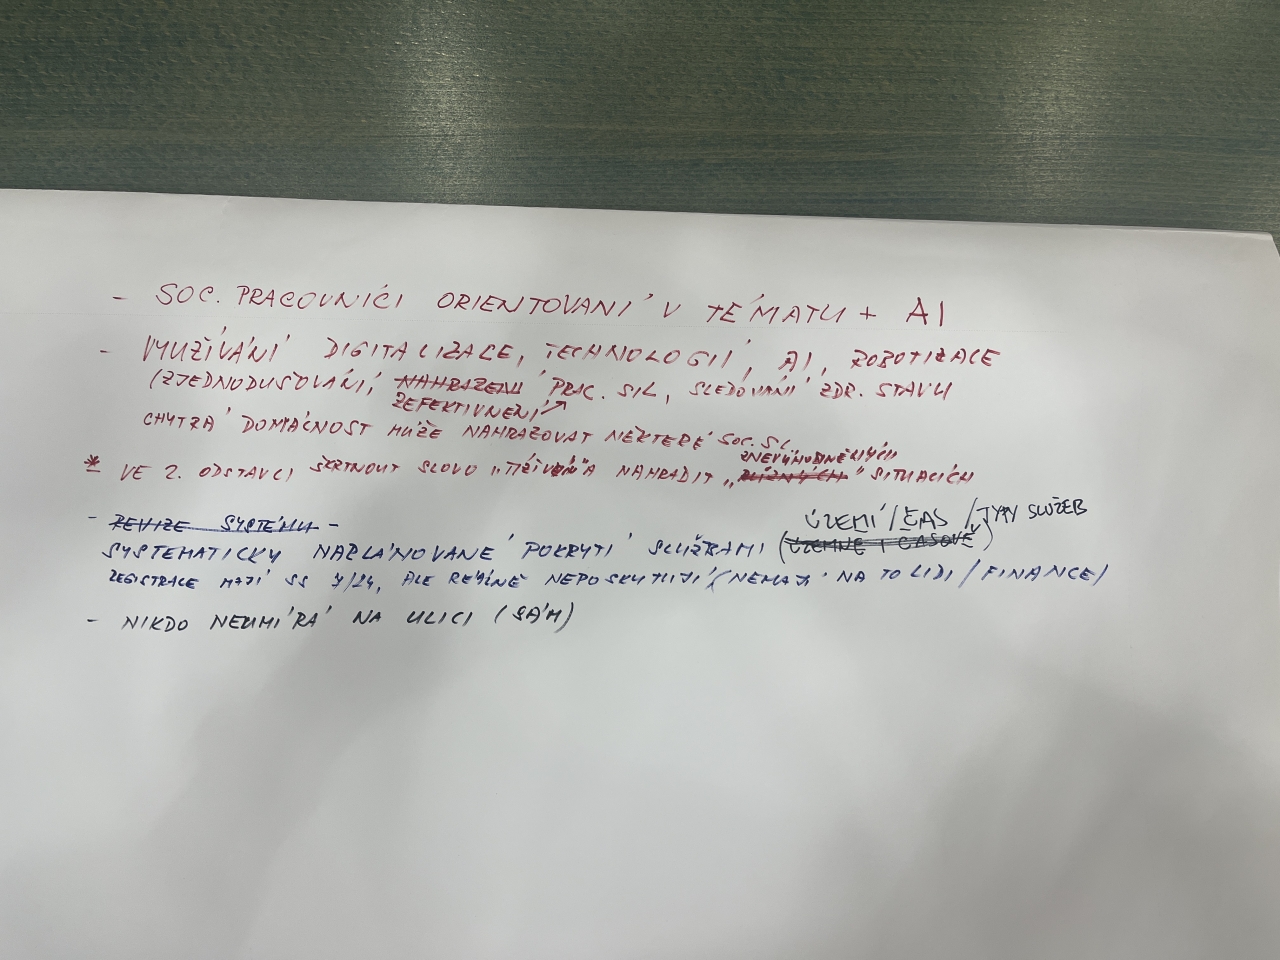 - SOC. PRACOVNÍCI ORIENTOVANÍ V TÉMATU + AI
- VYUŽÍVÁNÍ DIGITALIZACE, TECHNOLOGIÍ, AI, ROBOTIZACE
(ZJEDNODUŠOVÁNÍ, NAHRAZENÍ PRAC. SIL, SLEDOVÁNÍ ZDR. STAVU
ZEFEKTIVNENÍ
CHYTRÁ DOMÁCNOST MŮŽE NAHRAZOVAT NĚKTERÉ SOC. SL.
ZNEVÝHODNĚNÝCH
* VE 2. ODSTAVCI ŠKRTNOUT SLOVO „TÍŽIVÉ" A NAHRADIT „ " SITUACÍCH
- REVIZE SYSTÉMU -
ÚZEMÍ/ČAS/TYPY SLUŽEB
SYSTEMATICKY NAPLÁNOVANÉ POKRYTÍ SLUŽBAMI (ÚZEMNĚ I ČASOVĚ)
REGISTRACE MAJÍ SS 7/24, ALE REÁLNĚ NEPOSKYTUJÍ (NEMAJÍ NA TO LIDI/FINANCE)
- NIKDO NEUMÍRÁ NA ULICI (SÁM)